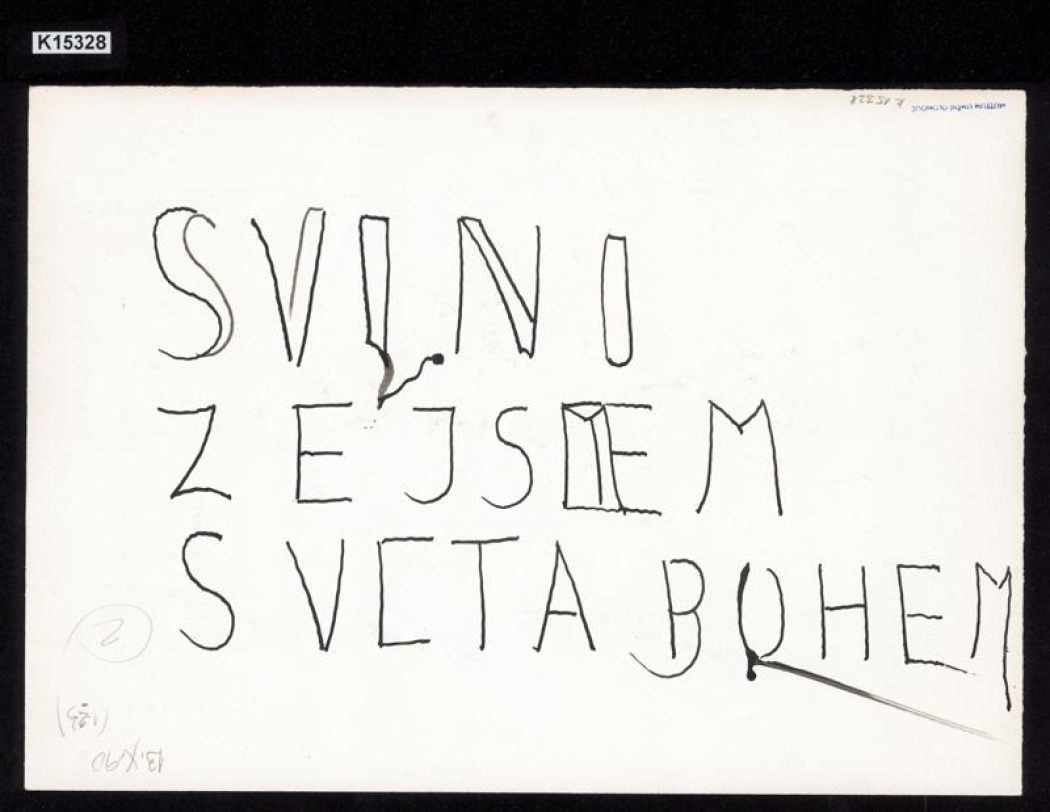 K15328
K 15328
MUZEUM UMĚNÍ OLOMOUC
SVINI
ZE JSEM
SVETA BOHEM
2
(123)
13.X.90